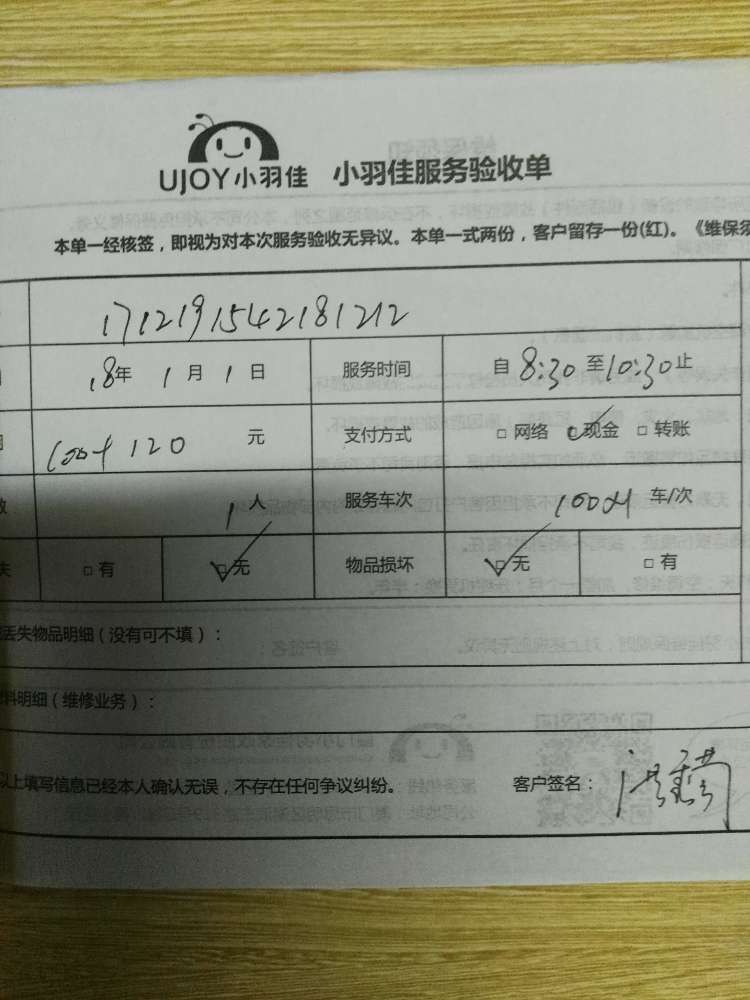 UJOY小羽佳 小羽佳服务验收单
本单一经核签，即视为对本次服务验收无异议。本单一式两份，客户留存一份(红)。《维保须
1712191542181212
18年 1月 1日 服务时间 自 8:30 至 10:30 止
100+120 元 支付方式 □ 网络 ☑ 现金 □ 转账
数 1 人 服务车次 车/次
失 □ 有 ☑ 无 物品损坏 ☑ 无 □ 有
丢失物品明细（没有可不填）：
料明细（维修业务）：
以上填写信息已经本人确认无误，不存在任何争议纠纷。 客户签名：